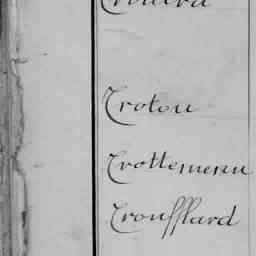 Trotou
Trottemenu
Troufflard